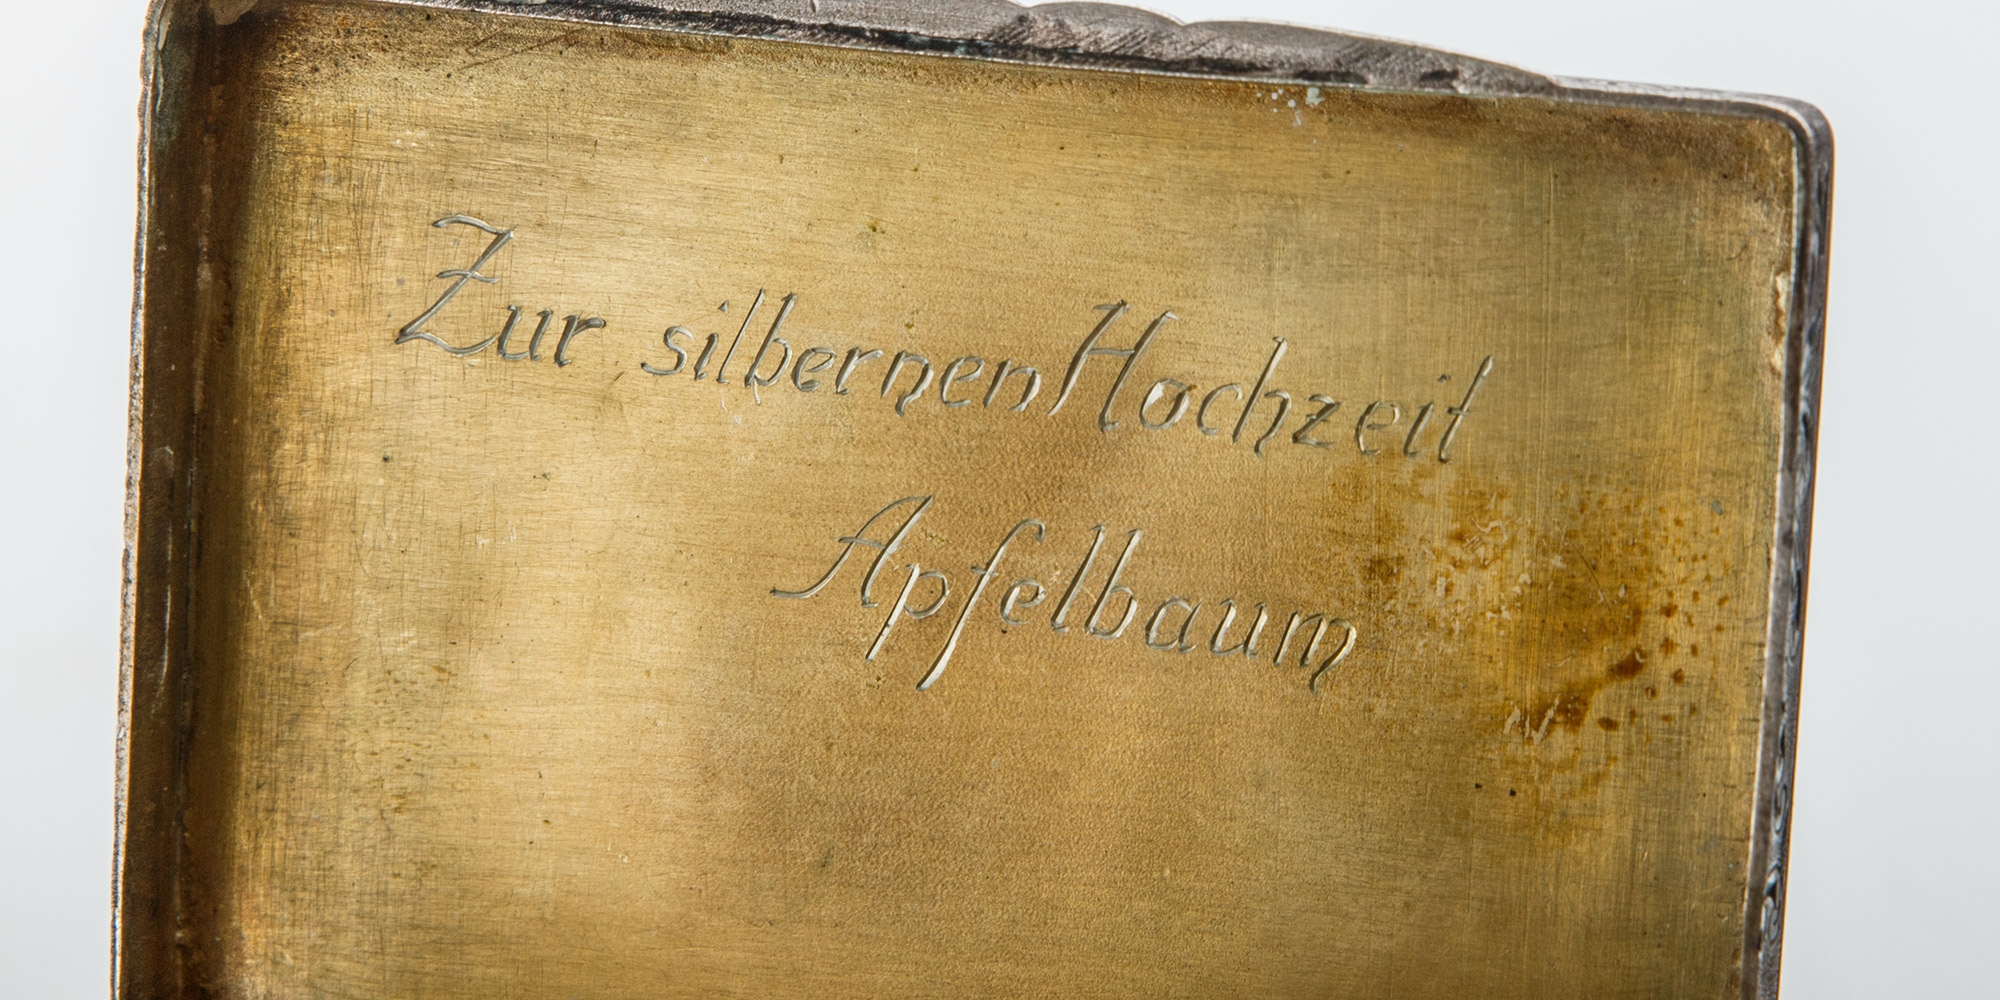 Zur silbernen Hochzeit
Apfelbaum